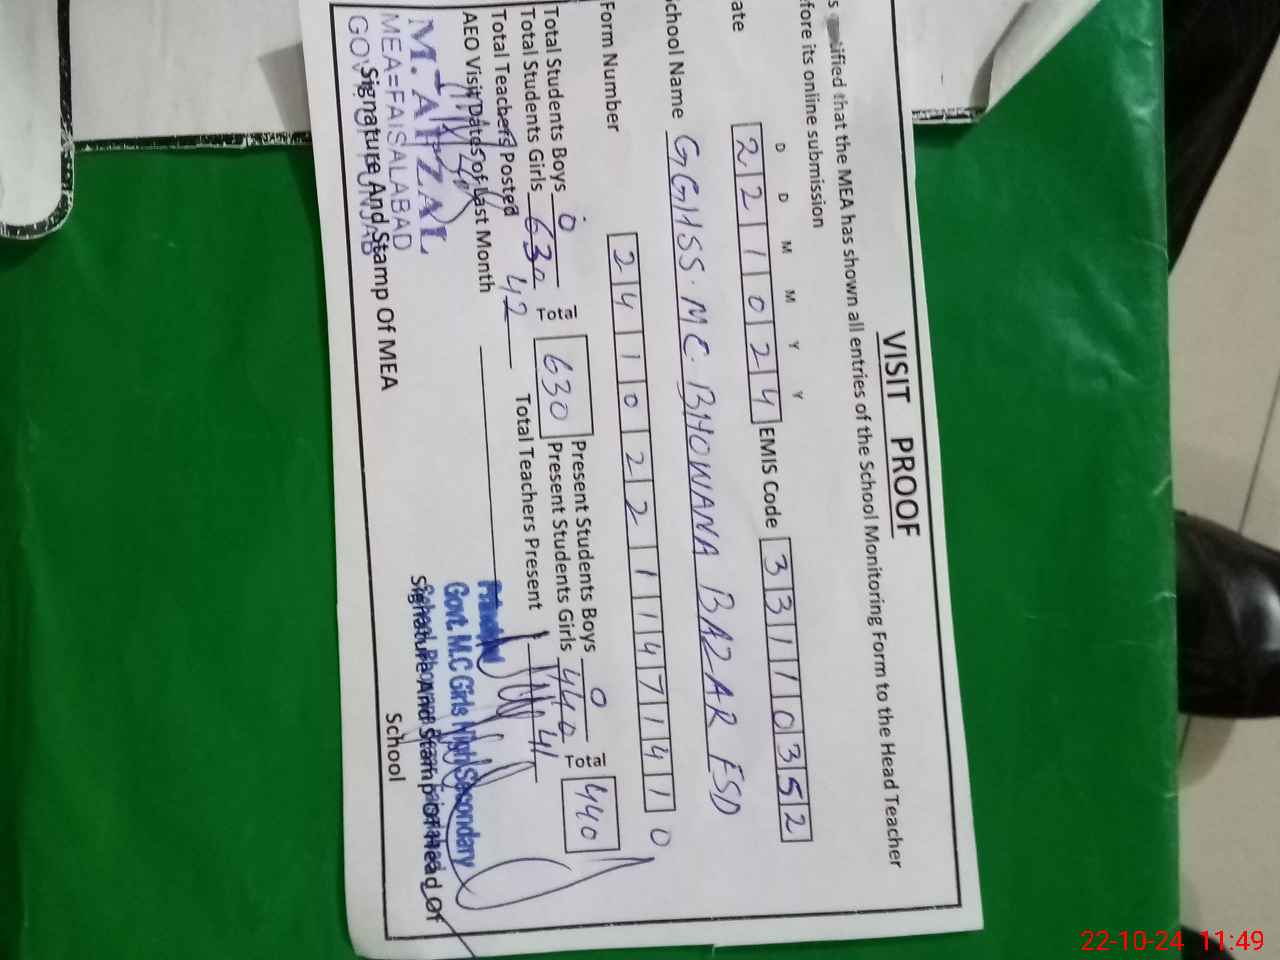 VISIT PROOF
s certified that the MEA has shown all entries of the School Monitoring Form to the Head Teacher
fore its online submission
D D M M Y Y
ate 2 2 1 0 2 4 EMIS Code 3 3 1 1 0 3 5 2
chool Name GGHSS. MC. BHOWANA BAZAR FSD
Form Number 2 4 1 0 2 2 1 1 4 7 1 4 1 0
Total Students Boys 0 Present Students Boys 0
Total Students Girls 630 Total 630 Present Students Girls 440 Total 440
Total Teachers Posted 42 Total Teachers Present 41
AEO Visit Dates of Last Month
M. AFZAL
MEA=FAISALABAD
GOV. OF PUNJAB
Signature And Stamp Of MEA
Principal
Govt. M.C Girls High Secondary
Signature And Stamp Of Head Of
School
22-10-24 11:49